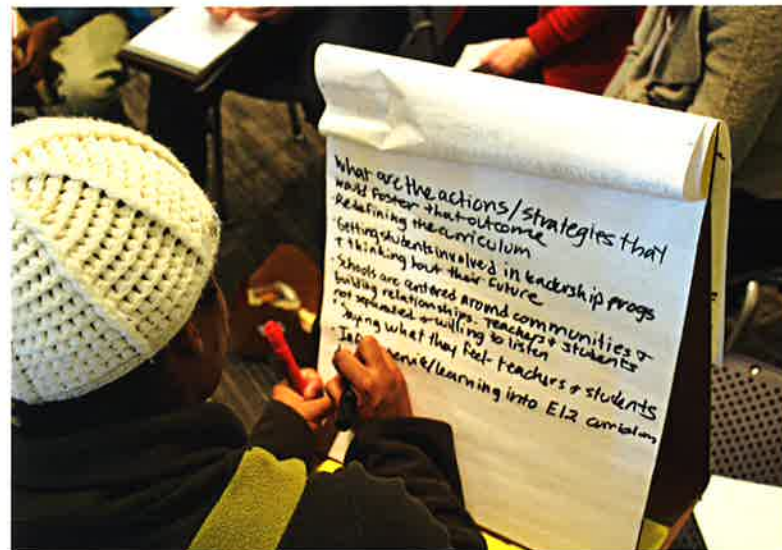 What are the actions/strategies that
would foster that outcome
· Redefining the curriculum
· Getting students involved in leadership progs
+ thinking bout their future
· Schools are centered around communities &
building relationships. Teachers & students
not separated & willing to listen
· Saying what they feel - teachers & students
service/learning into E12 curriculum